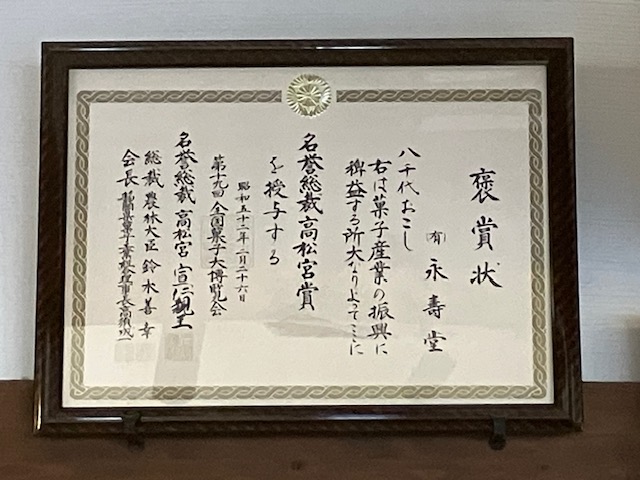 褒賞状
(有) 永壽堂
八千代おこし
右は菓子産業の振興に
稗益する所大なりよってここに
名誉総裁高松宮賞
を授与する
昭和五十二年二月二十六日
第十九回全国菓子大博覧会
名誉総裁 高松宮宣仁親王
総裁 農林大臣 鈴木善幸
会長